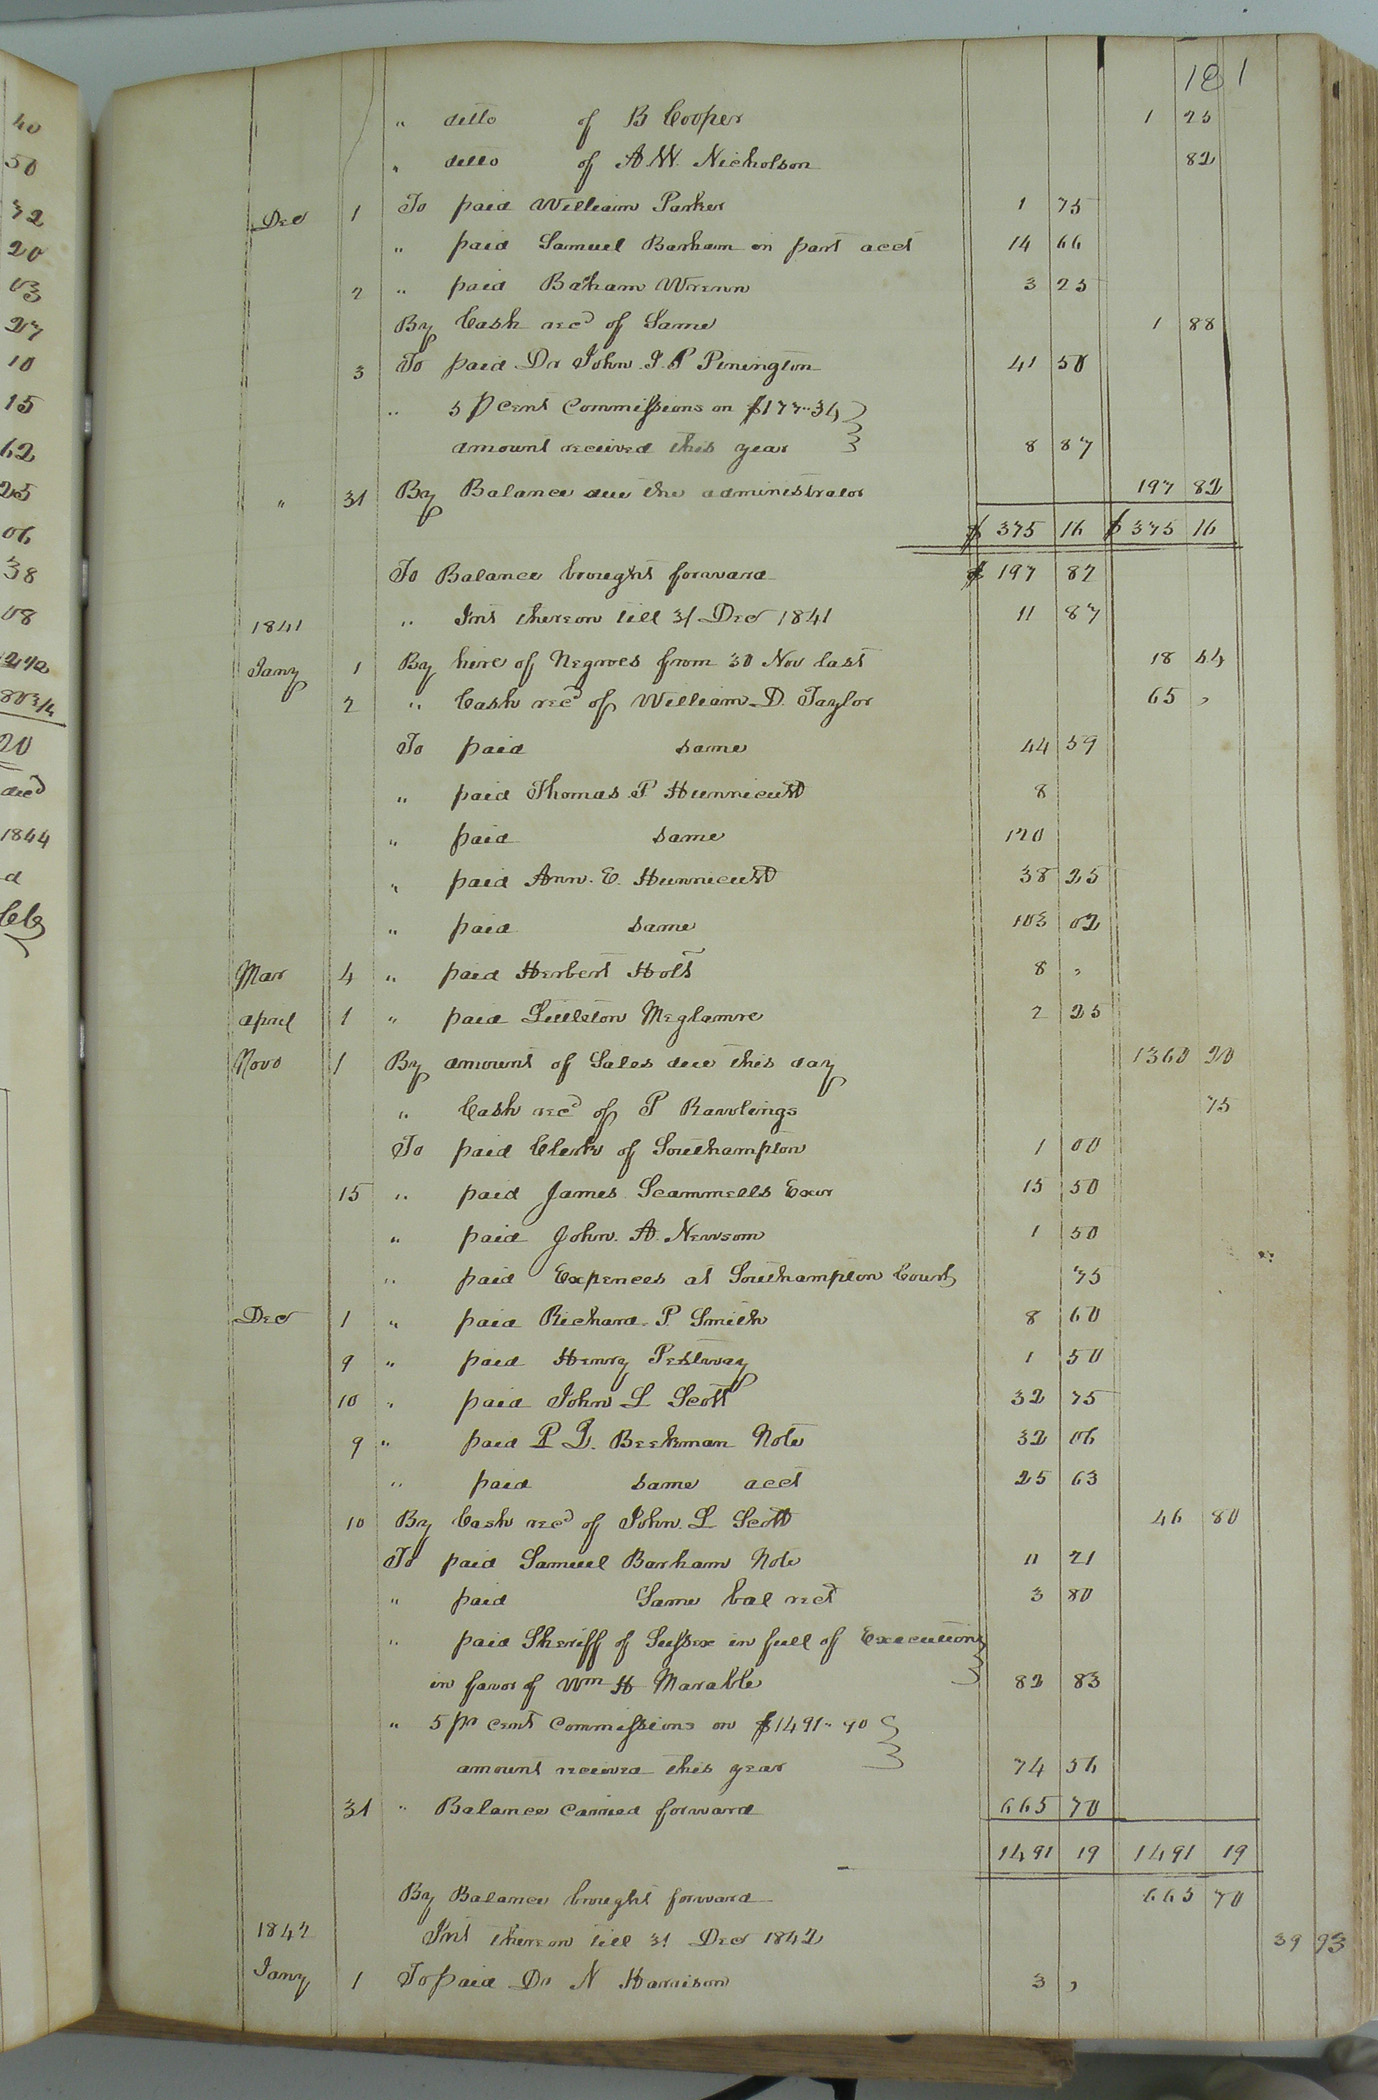 181
" ditto of B Cooper 1 25
" ditto of A. W. Nicholson 82
Dec 1 To paid William Parker 1 75
" paid Samuel Barham in part acct 14 66
2 " paid Barham Wrenn 3 25
By Cash recd of Same 1 88
3 To paid Dr John J. P Pinington 41 50
" 5 p cent Commissions on $177..34
amount received this year 8 87
" 31 By Balance due the administrator 197 82
$ 375 16 $ 375 16
To Balance brought forward $ 197 82
1841 " Int thereon till 31 Dec 1841 11 87
Jany 1 By hire of Negroes from 30 Nov last 18 44
2 " Cash recd of William D. Taylor 65 "
To paid same 44 59
" paid Thomas P Hunnicutt 8
" paid same 120
" paid Ann. E. Hunnicutt 38 25
" paid same 103 02
Mar 4 " paid Herbert Holt 8 "
april 1 " paid Littleton Meglamre 2 25
Novo 1 By amount of Sales due this day 1360 20
" Cash recd of P Rawlings 75
To paid Clerk of Southampton 1 00
15 " paid James Scammells Exor 15 50
" paid John. A. Newsom 1 50
" paid Expences at Southampton Court 75
Dec 1 " paid Richard. P Smith 8 60
9 " paid Henry Pestway 1 50
10 " paid John L Scott 32 75
9 " paid P I. Beekman Note 32 06
" paid same acct 25 63
10 By Cash recd of John. L Scott 46 80
To paid Samuel Barham Note 11 21
" paid Same bal rect 3 80
" paid Sheriff of Sussex in full of Executions
in favor of Wm H Marable 82 83
" 5 pr cent Commissions on $1491.. 90
amount received this year 74 56
31 " Balance carried forward 665 70
1491 19 1491 19
By Balance brought forward 665 70
1842 Int thereon till 31 Dec 1842 39 93
Jany 1 To paid Dr N Harrison 3 "
40
50
72
20
03
27
10
15
62
25
06
38
08
20
decd
1844